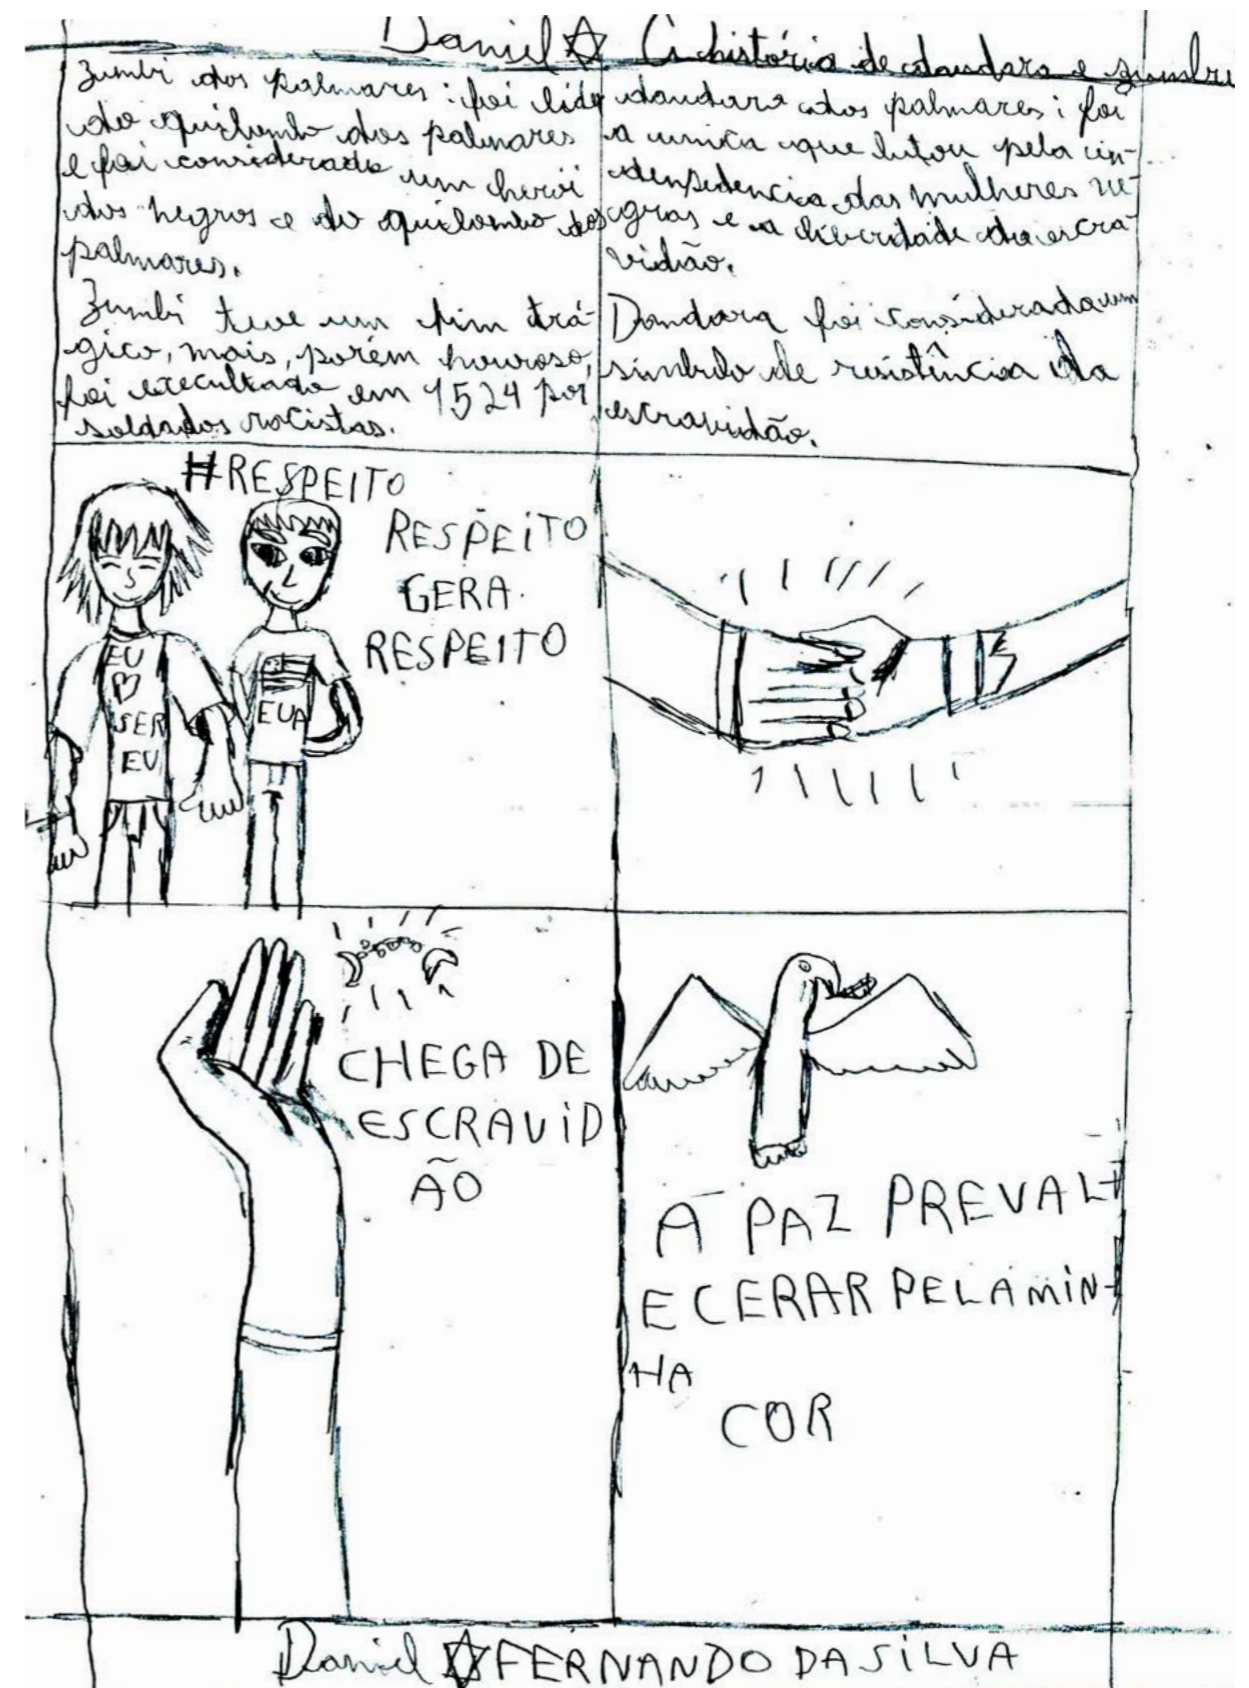 Daniel ☆ A história de dandara e zumbi
Zumbi dos palmares : foi lider
do quilombo dos palmares
e foi considerado um herói
dos negros e do quilombo dos
palmares.
Zumbi teve um fim trá-
gico, mais, porém houroso,
foi execultado em 1524 por
soldados racistas.
dandara dos palmares ; foi
a unica que lutou pela in-
dependencia das mulheres ne-
gras e a liberdade da escra-
vidão.
Dandara foi considerada um
simbulo de resistência da
escravidão.
#RESPEITO
RESPEITO
GERA
RESPEITO
EU
SER
EU
EUA
CHEGA DE
ESCRAVID
ÃO
A PAZ PREVAL-
ECERAR PELA MIN-
HA
COR
Daniel ☆ FERNANDO DA SILVA